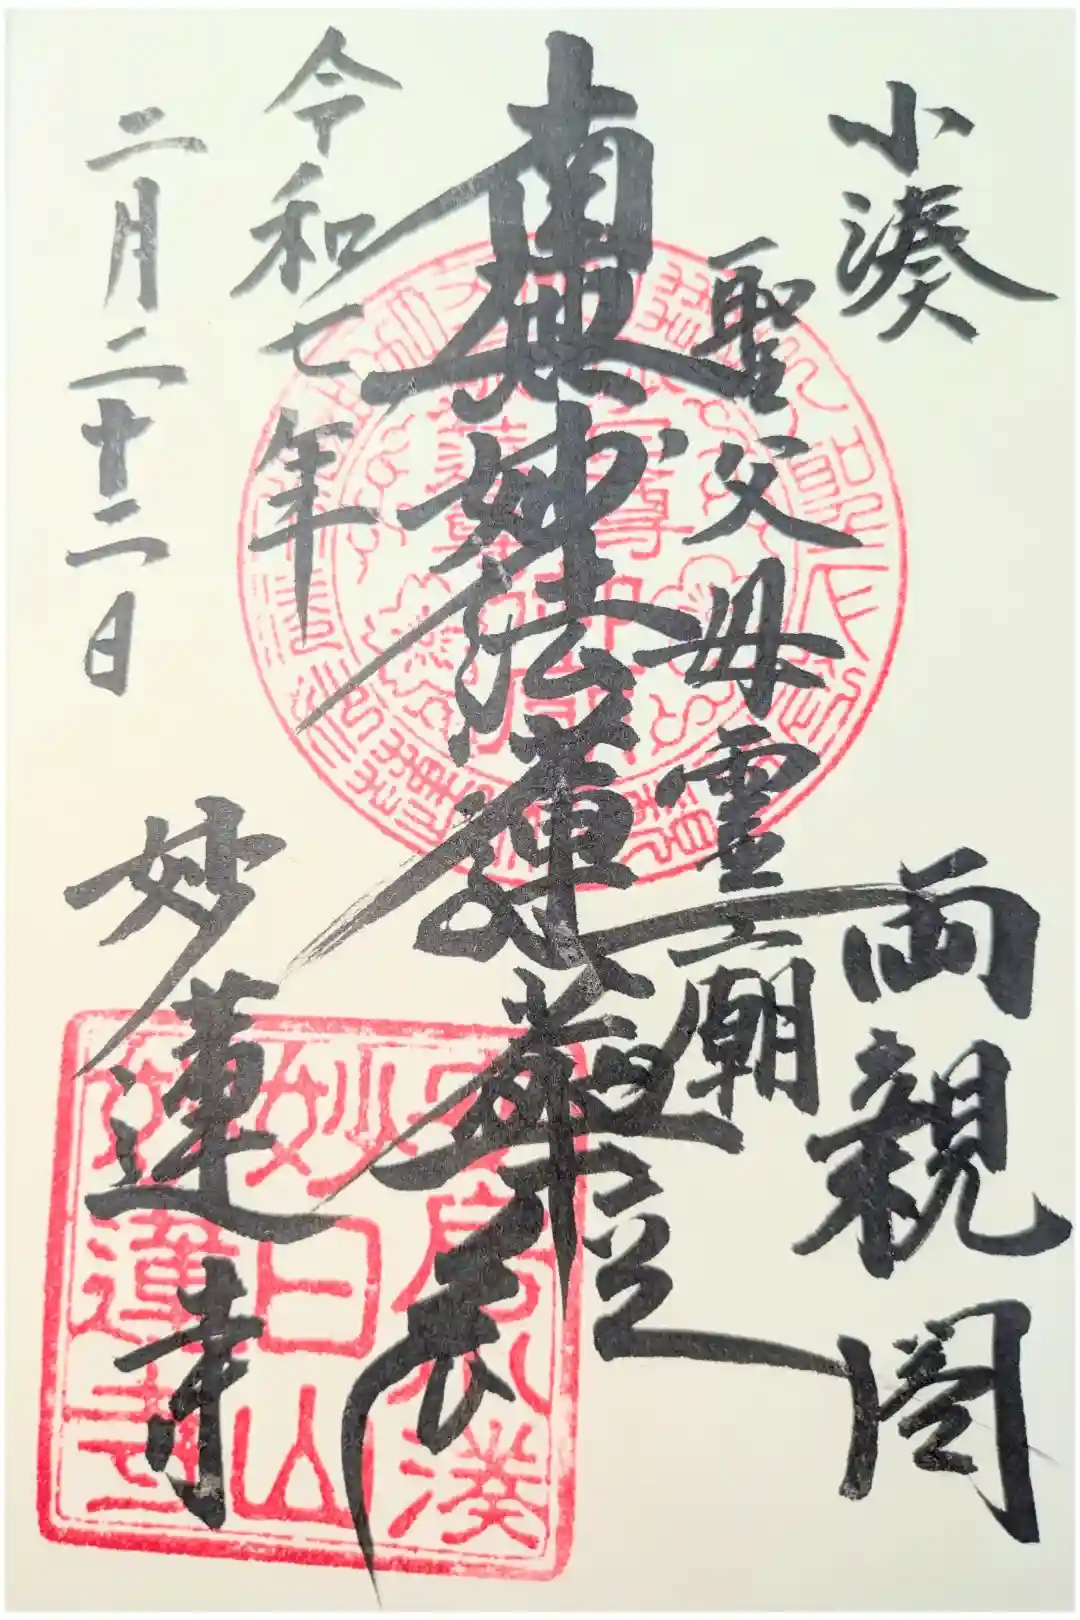 小湊
両親閣
聖父母霊廟
南無妙法蓮華経
令和七年
二月二十二日
妙蓮寺
房州小湊
妙日山
妙蓮寺